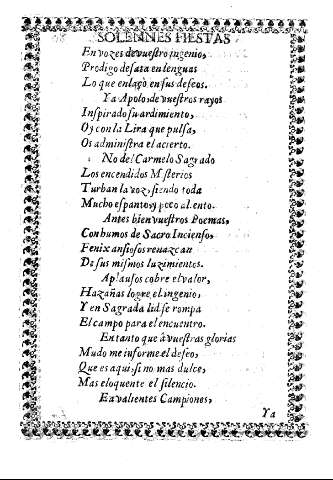 SOLENNES FIESTAS
En vozes de vuestro ingenio,
Prodigo desata en lenguas
Lo que enlaçò en sus deseos.
Ya Apolo, de vuestros rayos
Inspirado su ardimiento,
Oy con la Lira que pulsa,
Os administra el acierto.
No del Carmelo Sagrado
Los encendidos Misterios
Turban la voz, siendo toda
Mucho espanto, y poco aliento.
Antes bien vuestros Poemas,
Con humos de Sacro Incienso,
Fenix ansiosos renazcan
De sus mismos luzimientos.
Aplausos cobre el valor,
Hazañas logre el ingenio,
Y en Sagrada lid se rompa
El campo para el encuentro.
En tanto que à vuestras glorias
Mudo me informe el deseo,
Que es aqui, si no mas dulce,
Mas eloquente el silencio.
Ea valientes Campiones,
Ya